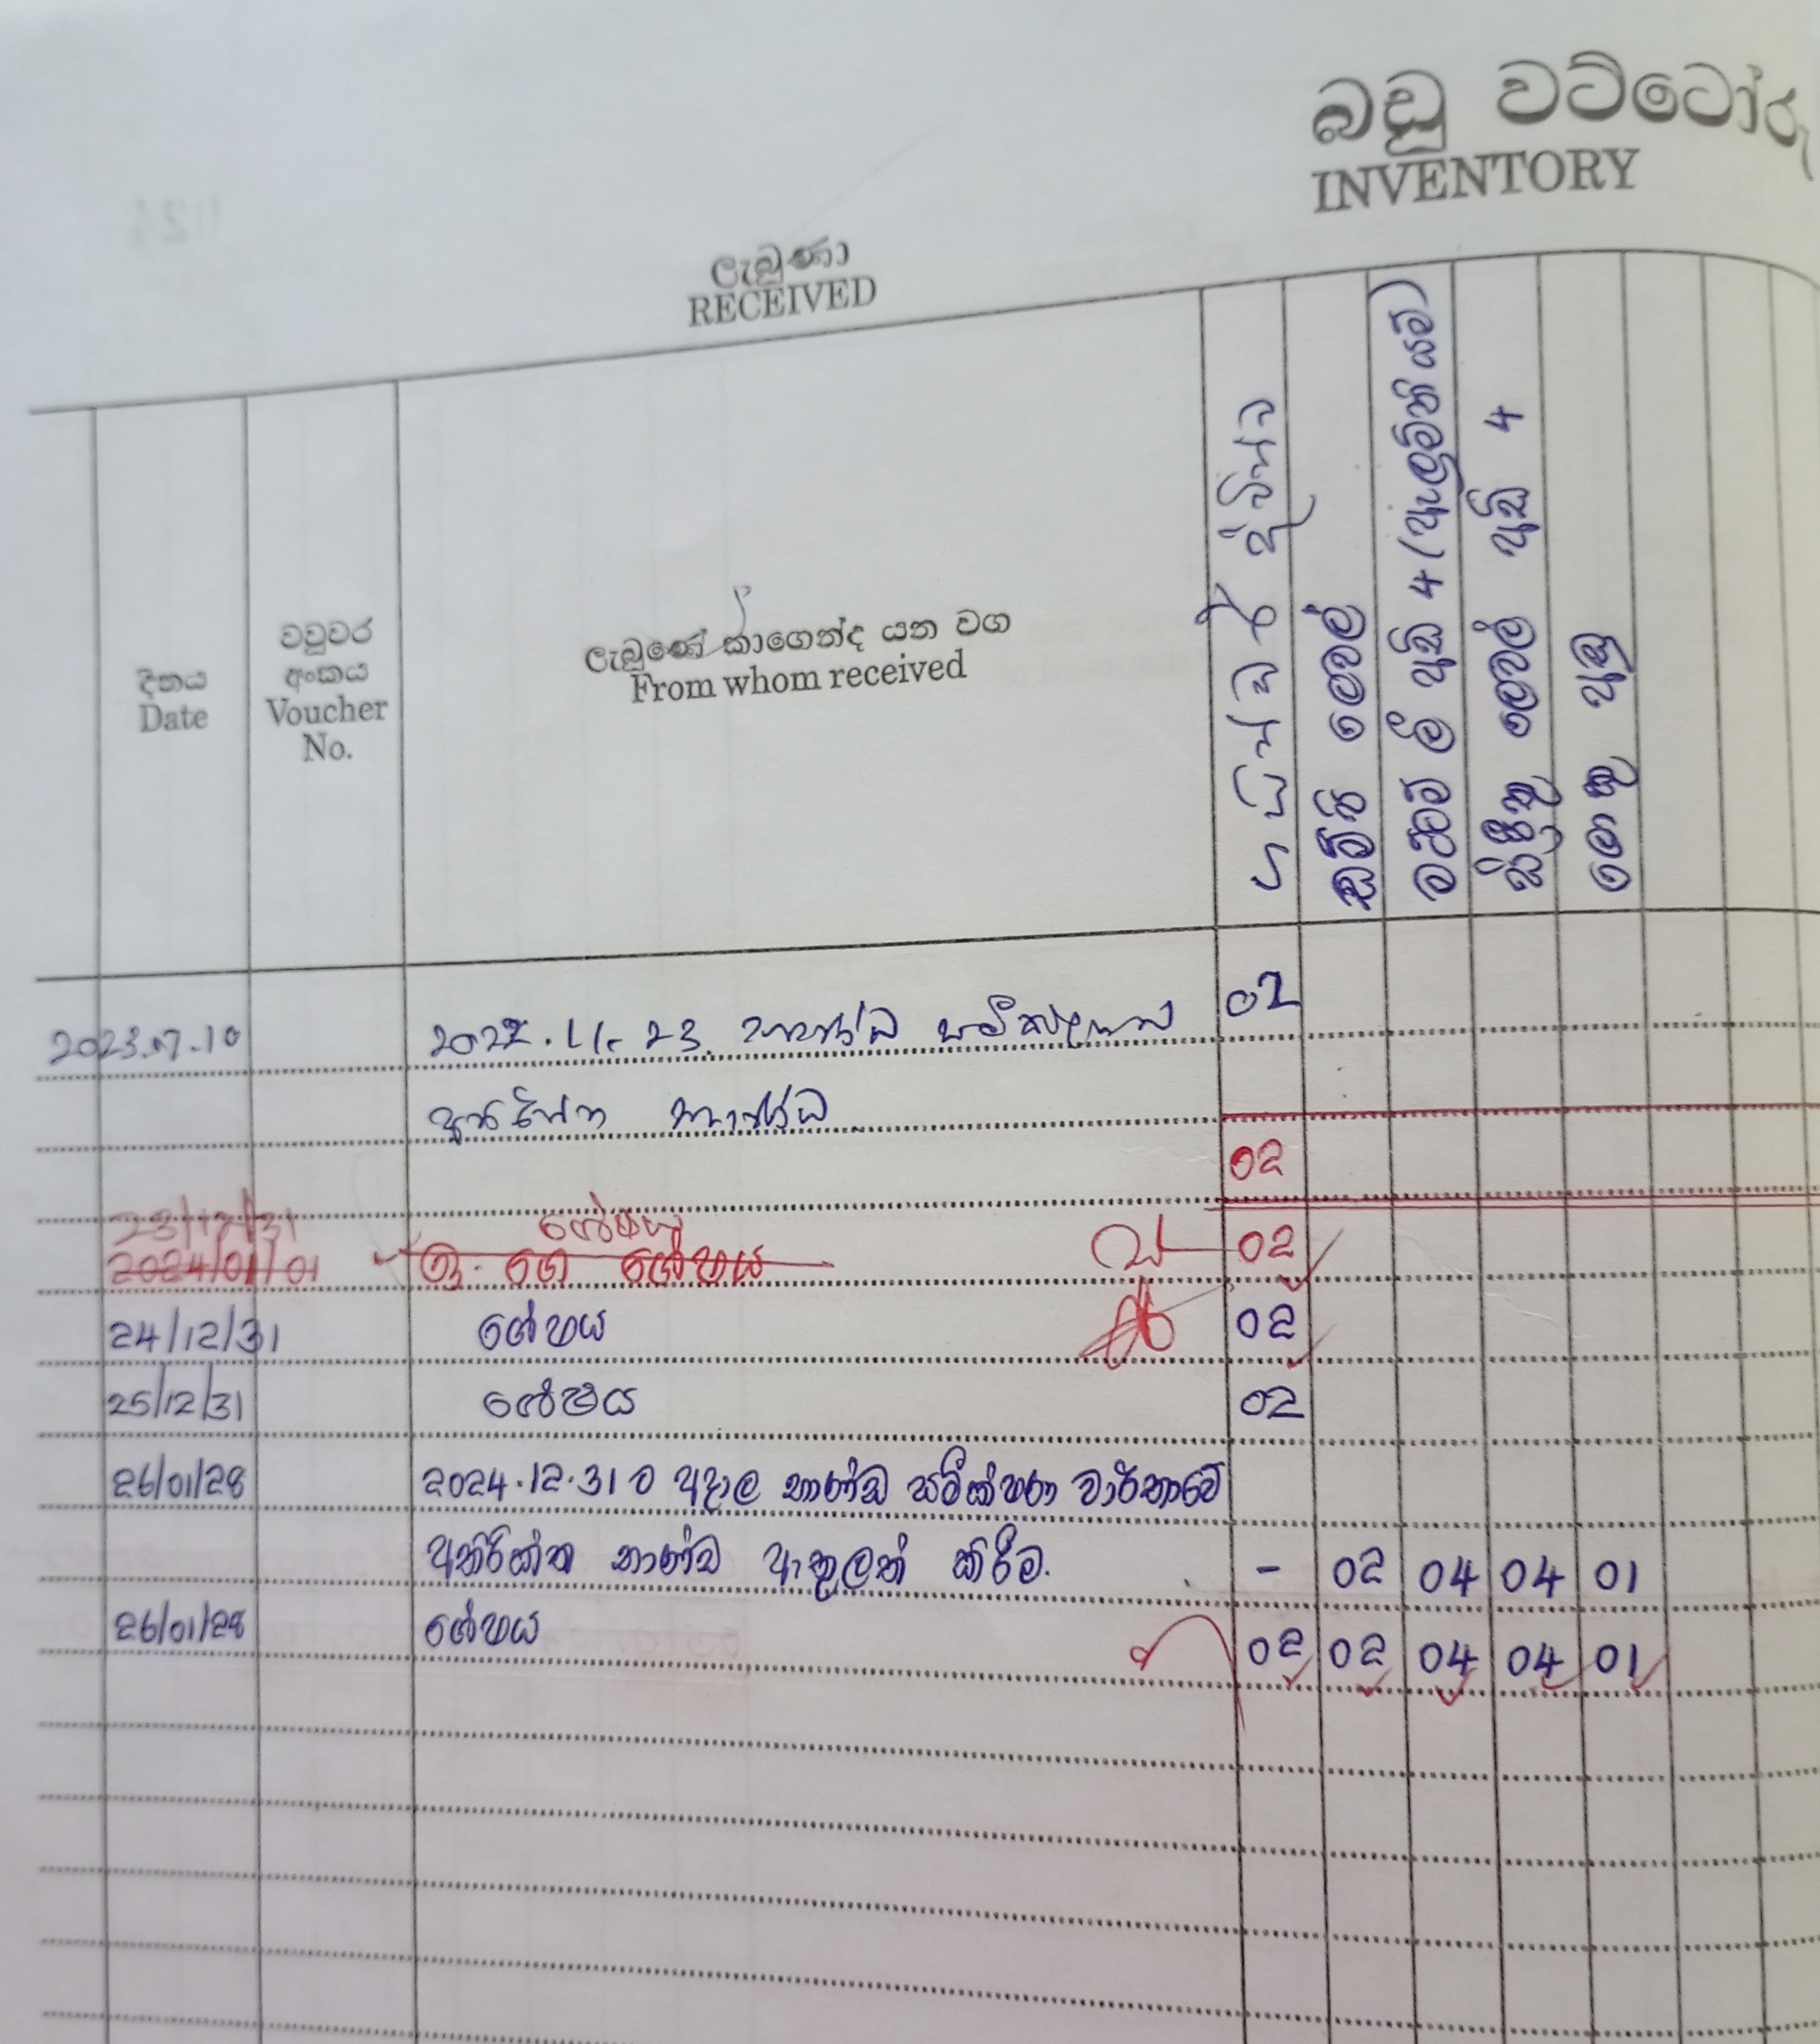 බඩු වට්ටෝරු
INVENTORY
ලැබුණා
RECEIVED
දිනය
Date
වවුචර
අංකය
Voucher
No.
ලැබුණේ කාගෙන්ද යන වග
From whom received
ලෙවල්
අඩි 4
ලෙවල් අඩි 4
අඩු
2023.07.10 2022.11.23. භාණ්ඩ සමීක්ෂණ 02
අතිරික්ත භාණ්ඩ
02
23/12/31 ශේෂය
2024/01/01 ඉ. ගෙ ශේෂය 02
24/12/31 ශේෂය 02
25/12/31 ශේෂය 02
26/01/28 2024.12.31 ට අදාල භාණ්ඩ සමීක්ෂණ වාර්තාවේ
අතිරික්ත භාණ්ඩ ඇතුලත් කිරීම. - 02 04 04 01
26/01/28 ශේෂය 02 02 04 04 01